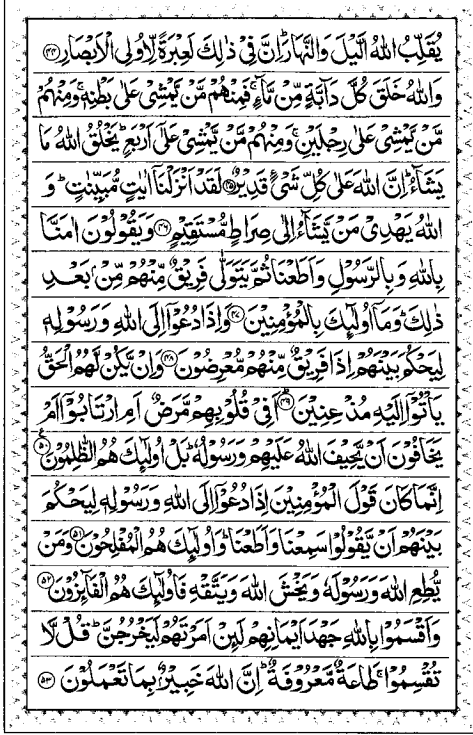 يُقَلِّبُ اللّٰهُ الَّيْلَ وَالنَّهَارَ ؕ اِنَّ فِيْ ذٰلِكَ لَعِبْرَةً لِّاُولِي الْاَبْصَارِ ﴿۴۴﴾
وَاللّٰهُ خَلَقَ كُلَّ دَآبَّةٍ مِّنْ مَّآءٍ ۚ فَمِنْهُمْ مَّنْ يَّمْشِيْ عَلٰى بَطْنِهٖ ۚ وَمِنْهُمْ
مَّنْ يَّمْشِيْ عَلٰى رِجْلَيْنِ ۚ وَمِنْهُمْ مَّنْ يَّمْشِيْ عَلٰۤى اَرْبَعٍ ؕ يَخْلُقُ اللّٰهُ مَا
يَشَآءُ ؕ اِنَّ اللّٰهَ عَلٰى كُلِّ شَيْءٍ قَدِيْرٌ ﴿۴۵﴾ لَقَدْ اَنْزَلْنَاۤ اٰيٰتٍ مُّبَيِّنٰتٍ ؕ وَ
اللّٰهُ يَهْدِيْ مَنْ يَّشَآءُ اِلٰى صِرَاطٍ مُّسْتَقِيْمٍ ﴿۴۶﴾ وَيَقُوْلُوْنَ اٰمَنَّا
بِاللّٰهِ وَبِالرَّسُوْلِ وَاَطَعْنَا ثُمَّ يَتَوَلّٰى فَرِيْقٌ مِّنْهُمْ مِّنْۢ بَعْدِ
ذٰلِكَ ؕ وَمَاۤ اُولٰٓئِكَ بِالْمُؤْمِنِيْنَ ﴿۴۷﴾ وَاِذَا دُعُوْۤا اِلَى اللّٰهِ وَرَسُوْلِهٖ
لِيَحْكُمَ بَيْنَهُمْ اِذَا فَرِيْقٌ مِّنْهُمْ مُّعْرِضُوْنَ ﴿۴۸﴾ وَاِنْ يَّكُنْ لَّهُمُ الْحَقُّ
يَاْتُوْۤا اِلَيْهِ مُذْعِنِيْنَ ﴿۴۹﴾ اَفِيْ قُلُوْبِهِمْ مَّرَضٌ اَمِ ارْتَابُوْۤا اَمْ
يَخَافُوْنَ اَنْ يَّحِيْفَ اللّٰهُ عَلَيْهِمْ وَرَسُوْلُهٗ ؕ بَلْ اُولٰٓئِكَ هُمُ الظّٰلِمُوْنَ ﴿۵۰﴾
اِنَّمَا كَانَ قَوْلَ الْمُؤْمِنِيْنَ اِذَا دُعُوْۤا اِلَى اللّٰهِ وَرَسُوْلِهٖ لِيَحْكُمَ
بَيْنَهُمْ اَنْ يَّقُوْلُوْا سَمِعْنَا وَاَطَعْنَا ؕ وَاُولٰٓئِكَ هُمُ الْمُفْلِحُوْنَ ﴿۵۱﴾ وَمَنْ
يُّطِعِ اللّٰهَ وَرَسُوْلَهٗ وَيَخْشَ اللّٰهَ وَيَتَّقْهِ فَاُولٰٓئِكَ هُمُ الْفَآئِزُوْنَ ﴿۵۲﴾
وَاَقْسَمُوْا بِاللّٰهِ جَهْدَ اَيْمَانِهِمْ لَئِنْ اَمَرْتَهُمْ لَيَخْرُجُنَّ ؕ قُلْ لَّا
تُقْسِمُوْا ۚ طَاعَةٌ مَّعْرُوْفَةٌ ؕ اِنَّ اللّٰهَ خَبِيْرٌۢ بِمَا تَعْمَلُوْنَ ﴿۵۳﴾